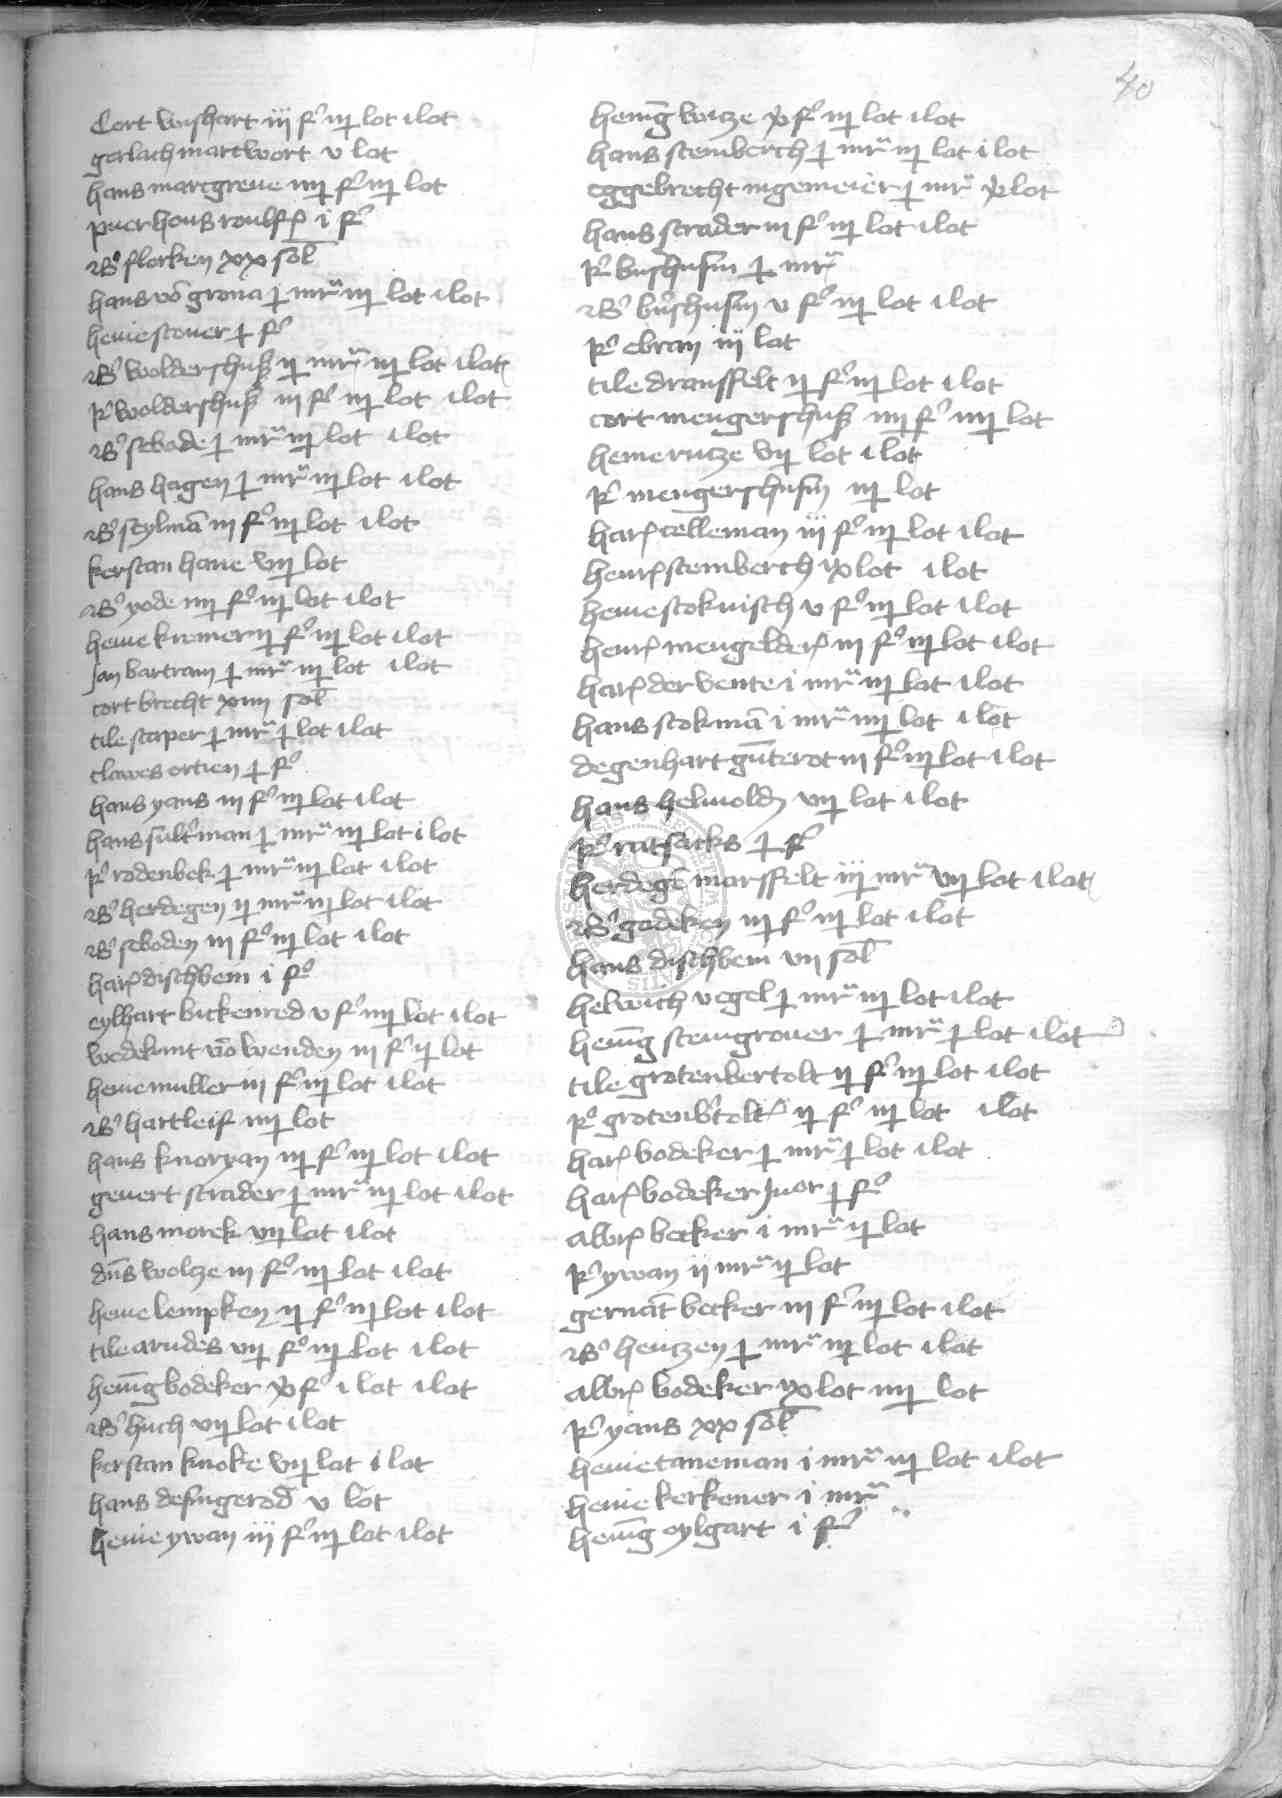 40
Cort vnshart iii f' iij lot i lot
gerlach martwort v lot
hans marcgreue iiij f' iij lot
puer hans roulff i f'
Rel' florken xx sol
hans vō grona j mr iij lot i lot
heine stouer j f'
Rel' woldershuß ij mr iij lot i lot
p' woldershuß iij f' iij lot i lot
Rel' sebode j mr iij lot i lot
hans hagen j mr iij lot i lot
Rel' steylmā iij f' iij lot i lot
kerstan haue viij lot
Rel' yode iiij f' iij lot i lot
heine kremer ij f' iij lot i lot
Jan bartram j mr iij lot i lot
cort brecht xiiii sol
tile scaper j mr j lot i lot
clawes ortien j f'
hans yans iii f' iij lot i lot
hans sult'man j mr iij lot i lot
p' rodenbek j mr iij lot i lot
Rel' herdegen ij mr iij lot i lot
Rel' seboden iii f' iij lot i lot
har' dischbein i f'
eylhart bickenrod v f' iij lot i lot
wedekint vō wenden iii f' ij lot
heine muller iii f' iij lot i lot
Rel' hartleif iiij lot
hans knorran iij f' iij lot i lot
geuert strader j mr iij lot i lot
hans morek viij lot i lot
dn̄s woltze iii f' iij lot i lot
heine lempken ij f' iij lot i lot
tile arndes vij f' iij lot i lot
hen̄ig bodeker x f' i lot i lot
Rel' huch vij lot i lot
kerstan knoke vij lot i lot
hans desingerod v lot
heine ywan iii f' iij lot i lot
hen̄ig witze x f' iij lot i lot
hans stemberch j mr iij lot i lot
eggebrecht ingemeier j mr x lot
hans strader iii f' iij lot i lot
p' bushusen j mr
Rel' bushusen v f' iij lot i lot
p' ebran iii lot
tile dransfelt ij f' iij lot i lot
cort mengershuß iiij f' iiij lot
heine rutze vij lot i lot
p' mengershusen iij lot
har' telleman iii f' iij lot i lot
henr' stemberch ix lot i lot
heine stokuisch v f' iij lot i lot
henr' mengelder' iii f' iij lot i lot
har' der vente i mr iij lot i lot
hans stokmā i mr iiij lot i lot
degenhart gūterot iii f' iij lot i lot
hans helmoldes viij lot i lot
p' ratsacks j f'
herdegē marsfelt iii mr vij lot i lot
Rel' godeken iij f' iij lot i lot
hans dischbein vii sol
helwich vogel j mr iij lot i lot
hen̄ig steingrouer j mr j lot i lot
tile grotenbertolt ij f' iij lot i lot
p' grotenb'tolt ij f' iij lot i lot
har' bodeker j mr j lot i lot
har' bodeker Juor j f'
albr' becker i mr ij lot
p' ywan ii mr ij lot
gernāt becker iii f' iij lot i lot
Rel' hentzen j mr iij lot i lot
albr' bodeker ix lot iiij lot
p' yans xx sol
heine taneman i mr iij lot i lot
heine kerkener i mr
hen̄ig eylgart i f'